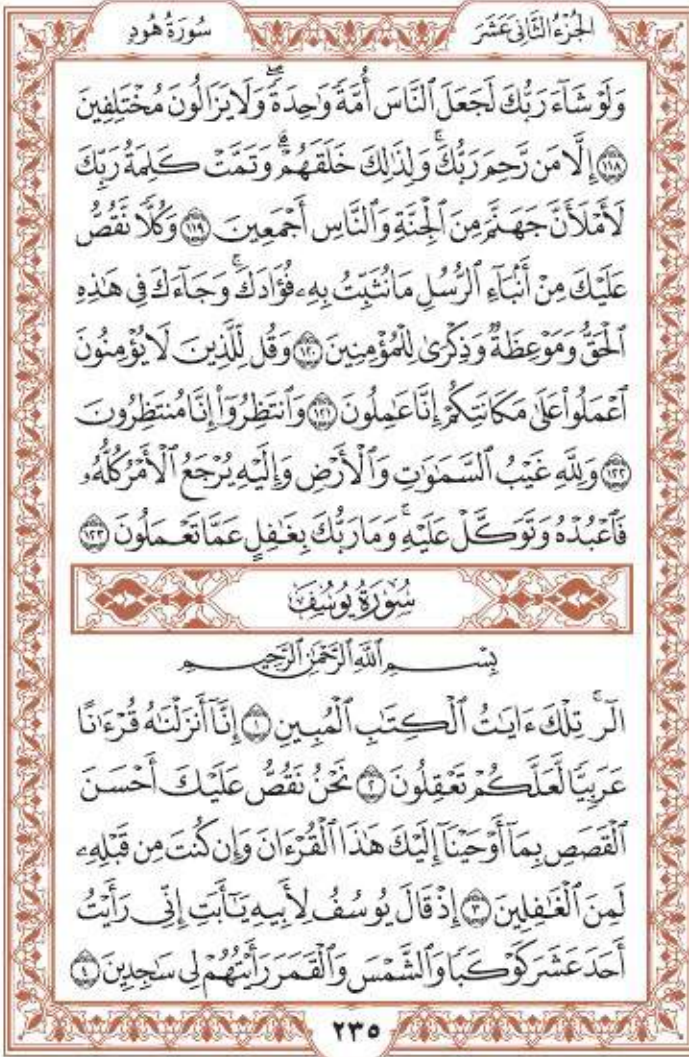 الجُزْءُ الثَّانِيَ عَشَرَ
سُورَةُ هُودٍ
وَلَوْ شَآءَ رَبُّكَ لَجَعَلَ ٱلنَّاسَ أُمَّةً وَٰحِدَةً ۖ وَلَا يَزَالُونَ مُخْتَلِفِينَ
١١٨ إِلَّا مَن رَّحِمَ رَبُّكَ ۚ وَلِذَٰلِكَ خَلَقَهُمْ ۗ وَتَمَّتْ كَلِمَةُ رَبِّكَ
لَأَمْلَأَنَّ جَهَنَّمَ مِنَ ٱلْجِنَّةِ وَٱلنَّاسِ أَجْمَعِينَ ١١٩ وَكُلًّا نَّقُصُّ
عَلَيْكَ مِنْ أَنۢبَآءِ ٱلرُّسُلِ مَا نُثَبِّتُ بِهِۦ فُؤَادَكَ ۚ وَجَآءَكَ فِى هَٰذِهِ
ٱلْحَقُّ وَمَوْعِظَةٌ وَذِكْرَىٰ لِلْمُؤْمِنِينَ ١٢٠ وَقُل لِّلَّذِينَ لَا يُؤْمِنُونَ
ٱعْمَلُوا۟ عَلَىٰ مَكَانَتِكُمْ إِنَّا عَٰمِلُونَ ١٢١ وَٱنتَظِرُوٓا۟ إِنَّا مُنتَظِرُونَ
١٢٢ وَلِلَّهِ غَيْبُ ٱلسَّمَٰوَٰتِ وَٱلْأَرْضِ وَإِلَيْهِ يُرْجَعُ ٱلْأَمْرُ كُلُّهُۥ
فَٱعْبُدْهُ وَتَوَكَّلْ عَلَيْهِ ۚ وَمَا رَبُّكَ بِغَٰفِلٍ عَمَّا تَعْمَلُونَ ١٢٣
سُورَةُ يُوسُفَ
بِسْمِ ٱللَّهِ ٱلرَّحْمَٰنِ ٱلرَّحِيمِ
الٓر ۚ تِلْكَ ءَايَٰتُ ٱلْكِتَٰبِ ٱلْمُبِينِ ١ إِنَّآ أَنزَلْنَٰهُ قُرْءَٰنًا
عَرَبِيًّا لَّعَلَّكُمْ تَعْقِلُونَ ٢ نَحْنُ نَقُصُّ عَلَيْكَ أَحْسَنَ
ٱلْقَصَصِ بِمَآ أَوْحَيْنَآ إِلَيْكَ هَٰذَا ٱلْقُرْءَانَ وَإِن كُنتَ مِن قَبْلِهِۦ
لَمِنَ ٱلْغَٰفِلِينَ ٣ إِذْ قَالَ يُوسُفُ لِأَبِيهِ يَٰٓأَبَتِ إِنِّى رَأَيْتُ
أَحَدَ عَشَرَ كَوْكَبًا وَٱلشَّمْسَ وَٱلْقَمَرَ رَأَيْتُهُمْ لِى سَٰجِدِينَ ٤
٢٣٥